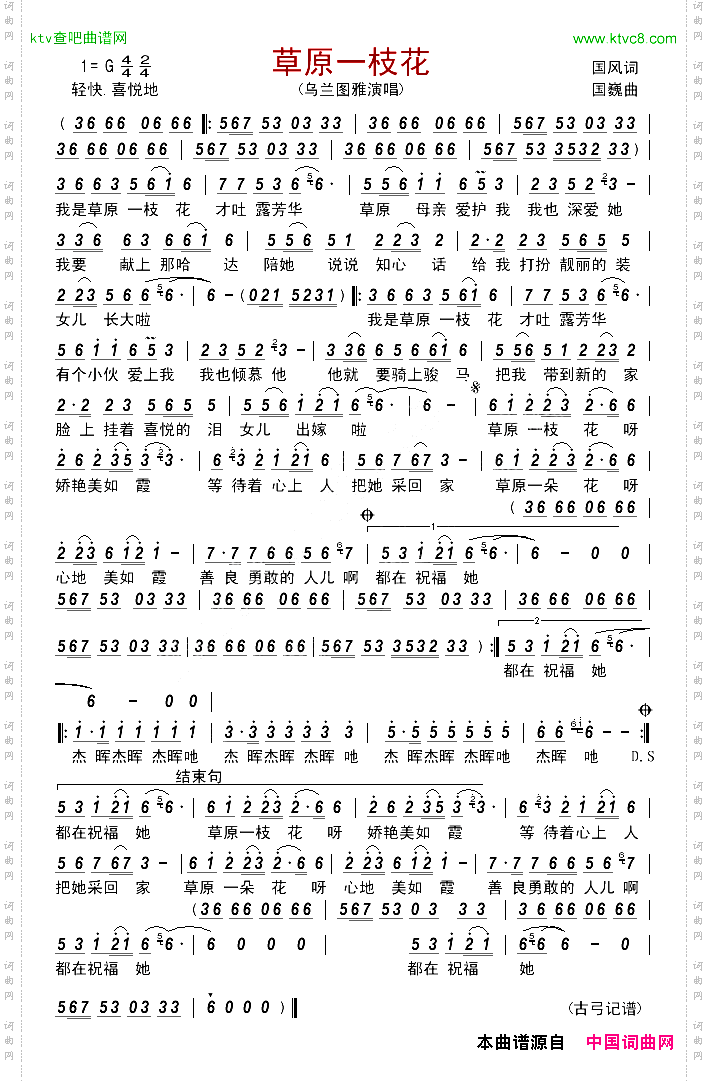 ktv查吧曲谱网
www.ktvc8.com
草原一枝花
1=G 4/4 2/4
国风词
轻快.喜悦地
(乌兰图雅演唱)
国巍曲
( 36 66 06 66 |: 567 53 03 33 | 36 66 06 66 | 567 53 03 33 |
36 66 06 66 | 567 53 03 33 | 36 66 06 66 | 567 53 3532 33 )
3 6 6 3 5 6 i 6 | 7 7 5 3 6 6· | 5 5 6 i i 6 3 | 2 3 5 2 3 - |
我是草原 一枝 花 才吐 露芳华 草原 母亲 爱护 我 我也 深爱 她
3 3 6 6 3 6 6 i 6 | 5 5 6 5 1 2 2 3 2 | 2· 2 2 3 5 6 5 5 |
我要 献上 那哈 达 陪她 说说 知心 话 给 我 打扮 靓丽的 装
2 2 3 5 6 6 6· | 6 - (021 5231) |: 3 6 6 3 5 6 i 6 | 7 7 5 3 6 6· |
女儿 长大啦 我是草原 一枝 花 才吐 露芳华
5 6 i i 6 3 | 2 3 5 2 3 - | 3 3 6 6 5 6 6 i 6 | 5 5 6 5 1 2 2 3 2 |
有个小伙 爱上我 我也倾慕 他 他就 要骑上骏 马 把我 带到新的 家
2· 2 2 3 5 6 5 5 | 5 5 6 i 2 i 6 6· | 6 - | 6 i 2 2 3 2· 6 6 |
脸 上 挂着 喜悦的 泪 女儿 出嫁 啦 草原 一枝 花 呀
2 6 2 3 5 3 3· | 6 3 2 1 2 i | 5 6 7 6 7 3 - | 6 i 2 2 3 2· 6 6 |
娇艳美如 霞 等 待着 心上 人 把她 采回 家 草原一朵 花 呀
( 36 66 06 66 |
1
2 2 3 6 i 2 i - | 7· 7 7 6 6 5 6 7 | 5 3 i 2 i 6 6· | 6 - 0 0 |
心地 美如 霞 善 良 勇敢的 人儿 啊 都在 祝福 她
567 53 03 33 | 36 66 06 66 | 567 53 03 33 | 36 66 06 66 |
2
567 53 03 33 | 36 66 06 66 | 567 53 3532 33 ) :| 5 3 i 2 i 6 6· |
都在 祝福 她
6 - 0 0 |
|: i· i i i i i i | 3· 3 3 3 3 3 3 | 5· 5 5 5 5 5 5 | 6 6 6 - - :|
杰 晖杰晖 杰晖吔 杰 晖杰晖 杰晖吔 杰 晖杰晖 杰晖吔 杰晖 吔 D.S
结束句
5 3 i 2 i 6 6· | 6 i 2 2 3 2· 6 | 2 6 2 3 5 3 3· | 6 3 2 1 2 i |
都在祝福 她 草原一枝 花 呀 娇艳美如 霞 等 待着心上 人
5 6 7 6 7 3 - | 6 i 2 2 3 2· 6 | 2 2 3 6 i 2 i - | 7· 7 7 6 6 5 6 7 |
把她采回 家 草原 一朵 花 呀 心地 美如 霞 善 良勇敢的 人儿 啊
(36 66 06 66 | 567 53 03 33 | 36 66 06 66 |
5 3 i 2 i 6 6· | 6 0 0 0 | 5 3 i 2 i | 6 6 6 - - |
都在祝福 她 都在 祝福 她
567 53 03 33 | 6 0 0 0 ) ||
(古弓记谱)
本曲谱源自 中国词曲网